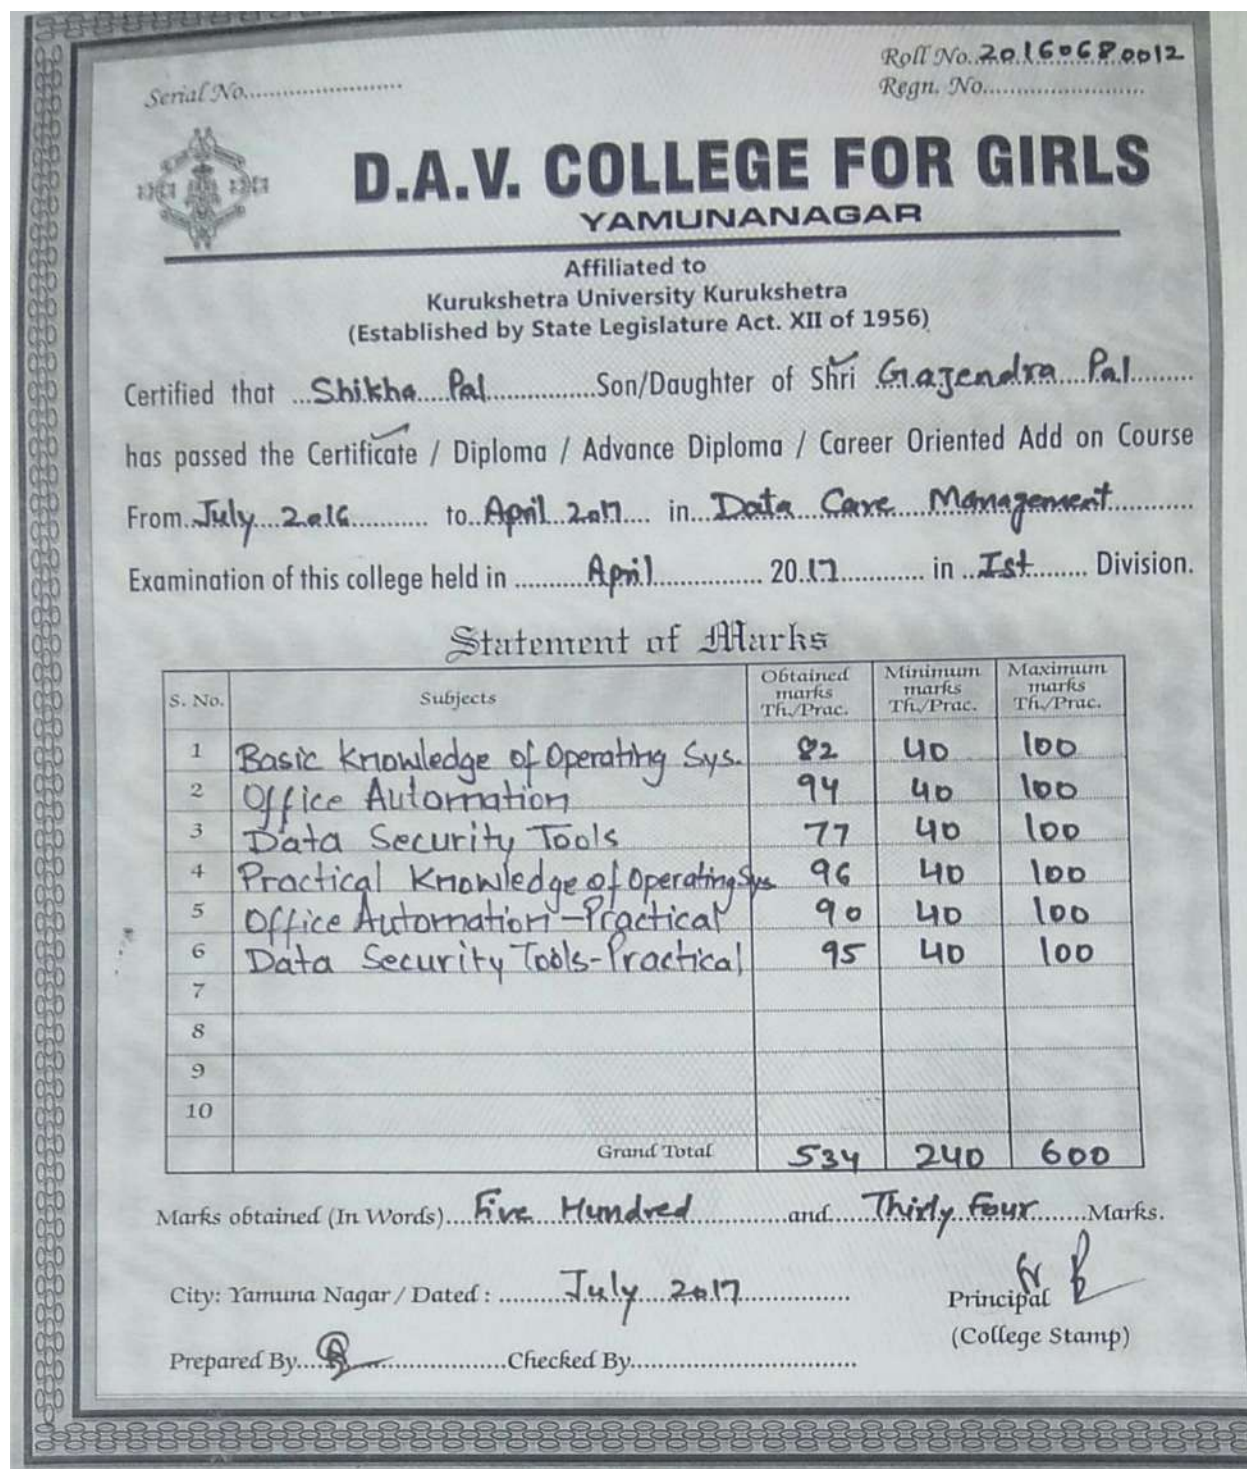 Roll No. 20160680012
Serial No........................
Regn. No........................
D.A.V. COLLEGE FOR GIRLS
YAMUNANAGAR
Affiliated to
Kurukshetra University Kurukshetra
(Established by State Legislature Act. XII of 1956)
Certified that ...Shikha Pal...Son/Daughter of Shri Gajendra Pal...
has passed the Certificate / Diploma / Advance Diploma / Career Oriented Add on Course
From July 2016 to April 2017 in Data Care Management
Examination of this college held in April 2017 in Ist Division.
Statement of Marks
S. No. Subjects Obtained marks Th./Prac. Minimum marks Th./Prac. Maximum marks Th./Prac.
1 Basic Knowledge of Operating Sys. 82 40 100
2 Office Automation 94 40 100
3 Data Security Tools 77 40 100
4 Practical Knowledge of Operating Sys 96 40 100
5 Office Automation-Practical 90 40 100
6 Data Security Tools-Practical 95 40 100
7
8
9
10
Grand Total 534 240 600
Marks obtained (In Words)....Five Hundred and Thirty Four Marks.
City: Yamuna Nagar / Dated : July 2017
Principal
(College Stamp)
Prepared By...................Checked By...................